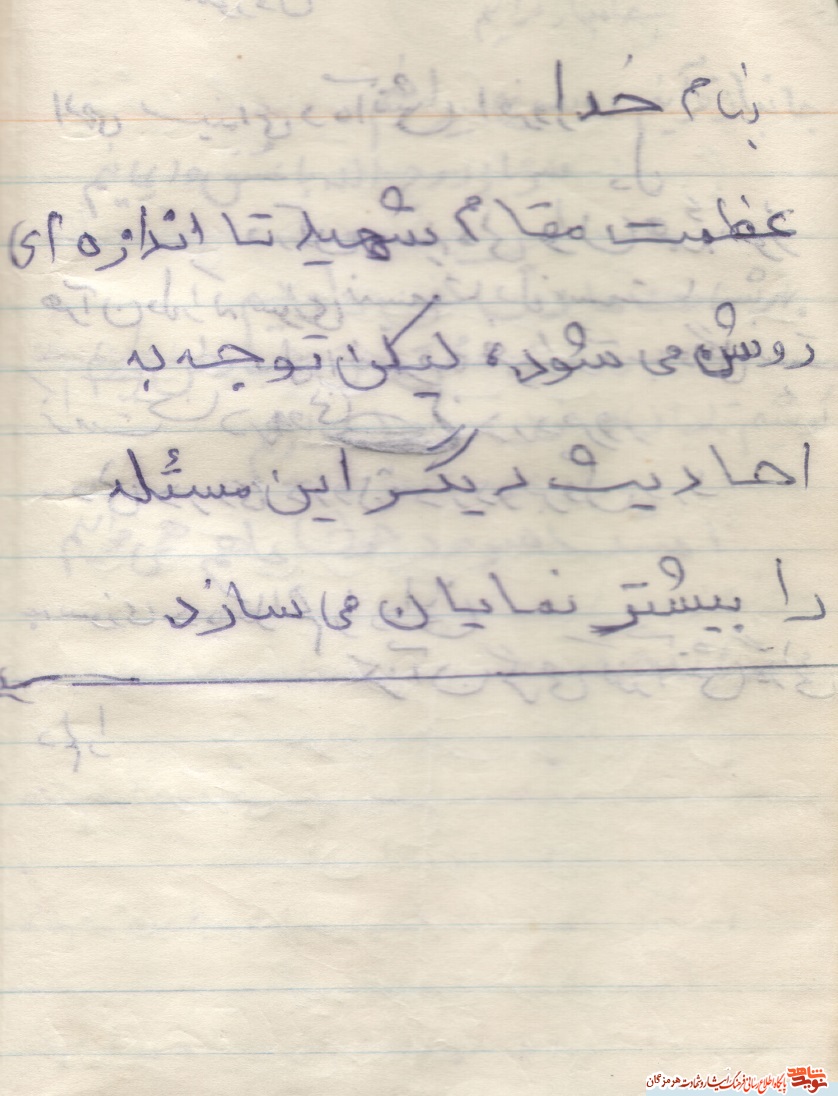 بنام خدا
عظمت مقام شهید تا اندازه ای
روشن می شود، لیکن توجه به
احادیث دیگر این مسئله
را بیشتر نمایان می سازد
نوید شاهد پایگاه اطلاع رسانی فرهنگ ایثار و شهادت هرمزگان